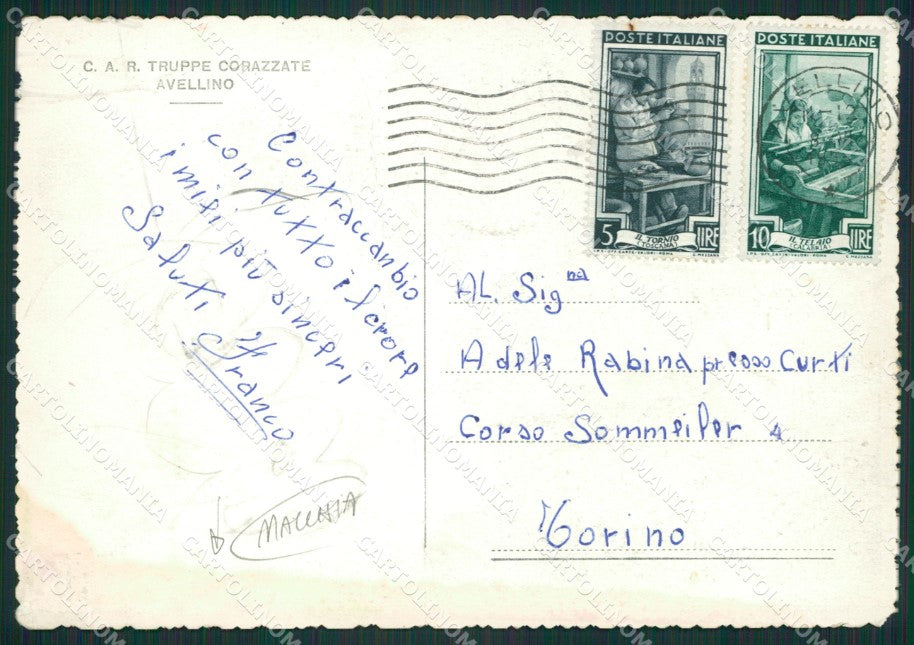 C. A. R. TRUPPE CORAZZATE
AVELLINO
Contraccanbio
con tutto il cuore
i miei più sinceri
Saluti
Franco
MACCHIA
POSTE ITALIANE
5 LIRE
IL TORNIO
(TOSCANA)
POSTE ITALIANE
10 LIRE
IL TELAIO
(CALABRIA)
AVELLINO
AL. Sig.na
Adele Rabina presso Curti
Corso Sommeiler 4
Torino
CARTOLINOMANIA